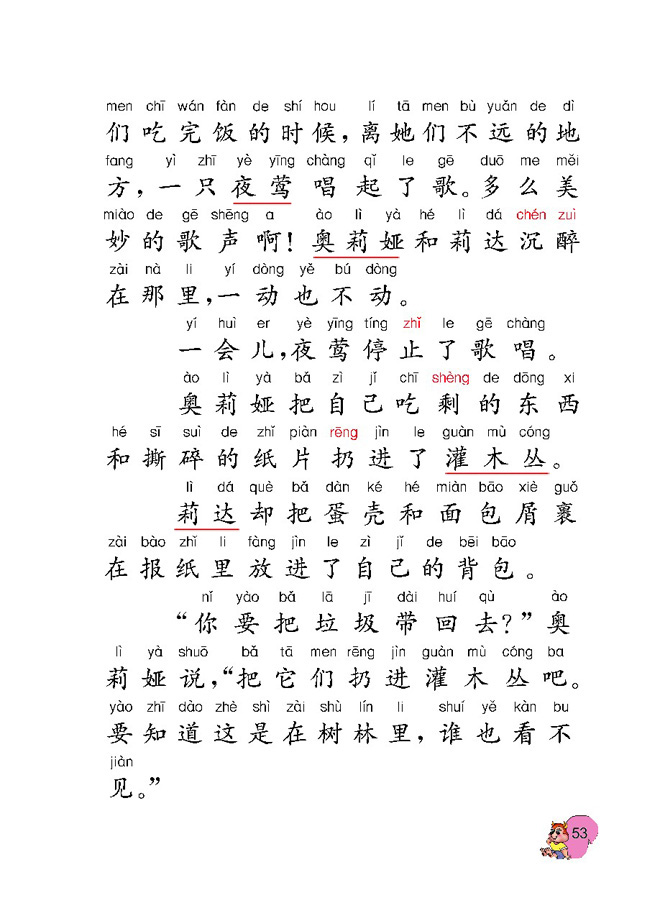 men chī wán fàn de shí hou lí tā men bù yuǎn de dì
们吃完饭的时候，离她们不远的地
fang yì zhī yè yīng chàng qǐ le gē duō me měi
方，一只夜莺唱起了歌。多么美
miào de gē shēng a ào lì yà hé lì dá chén zuì
妙的歌声啊！奥莉娅和莉达沉醉
zài nà li yí dòng yě bú dòng
在那里，一动也不动。
yí huì er yè yīng tíng zhǐ le gē chàng
一会儿，夜莺停止了歌唱。
ào lì yà bǎ zì jǐ chī shèng de dōng xi
奥莉娅把自己吃剩的东西
hé sī suì de zhǐ piàn rēng jìn le guàn mù cóng
和撕碎的纸片扔进了灌木丛。
lì dá què bǎ dàn ké hé miàn bāo xiè guǒ
莉达却把蛋壳和面包屑裹
zài bào zhǐ li fàng jìn le zì jǐ de bēi bāo
在报纸里放进了自己的背包。
nǐ yào bǎ lā jī dài huí qù ào
“你要把垃圾带回去？”奥
lì yà shuō bǎ tā men rēng jìn guàn mù cóng ba
莉娅说，“把它们扔进灌木丛吧。
yào zhī dào zhè shì zài shù lín li shuí yě kàn bu
要知道这是在树林里，谁也看不
jiàn
见。”
53